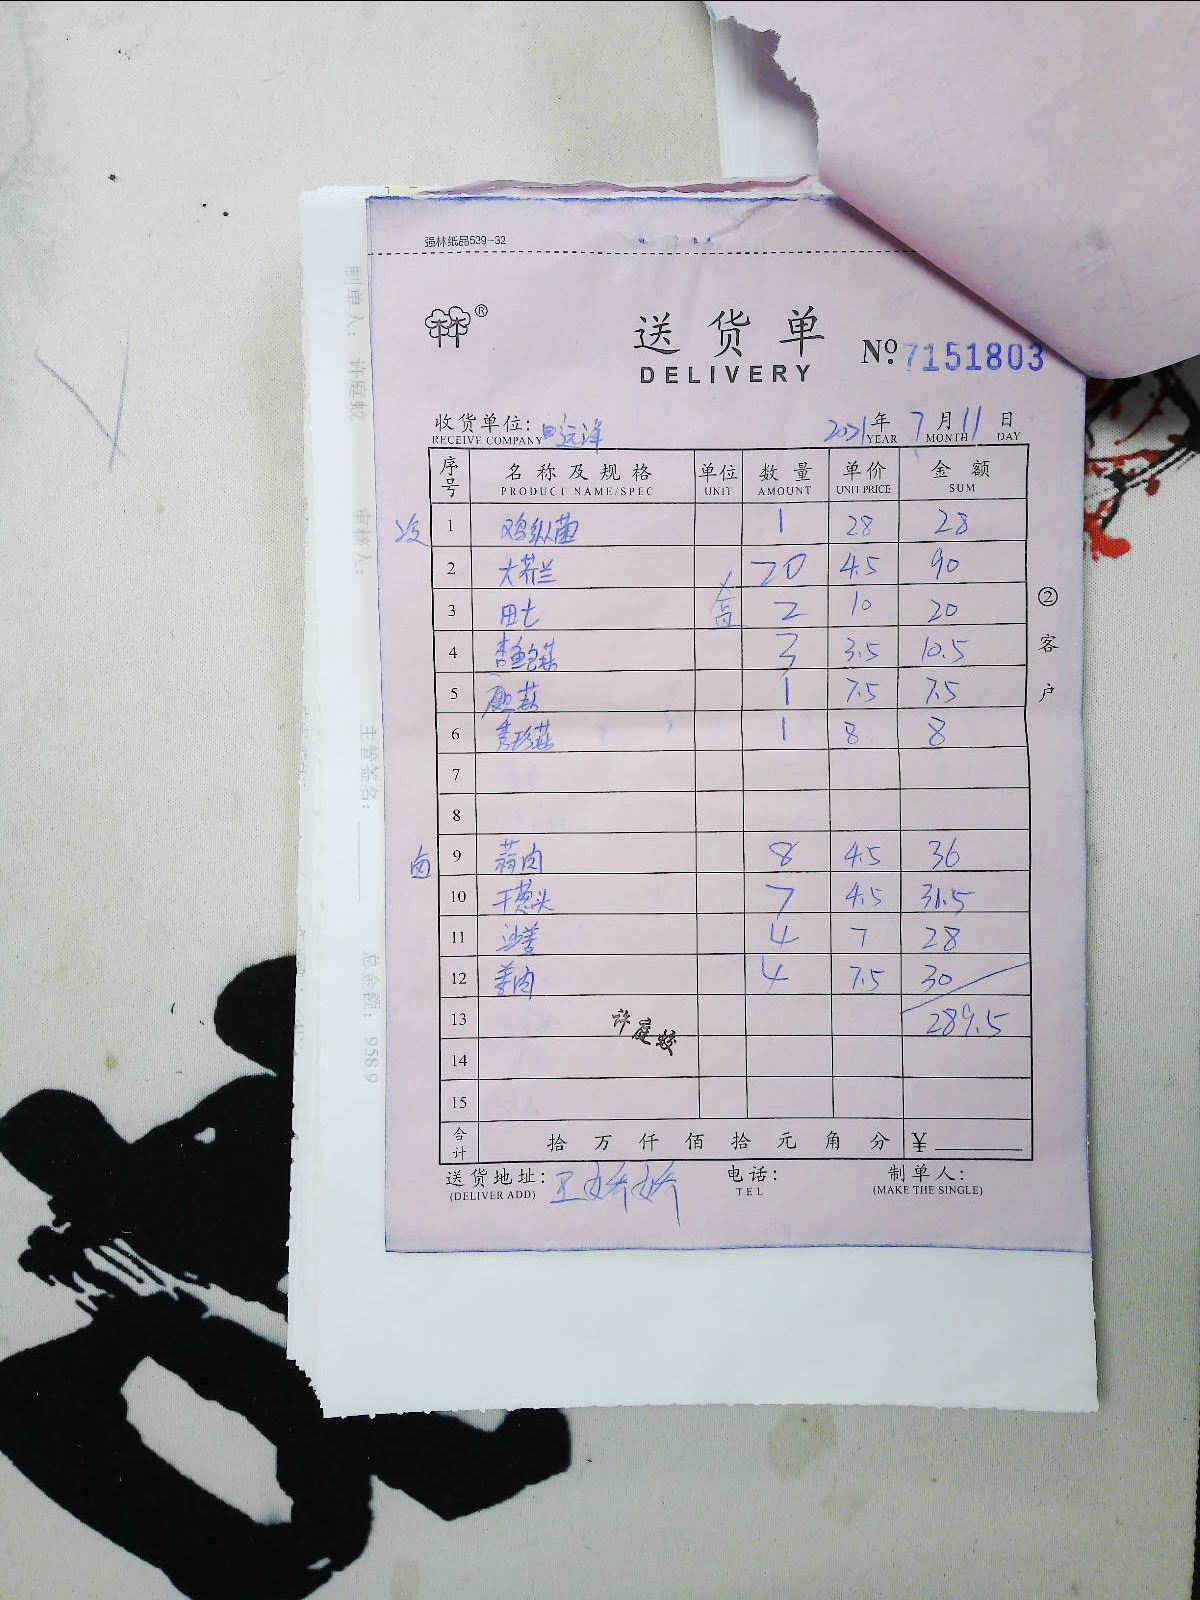 强林纸品539-32
林林®
送货单
DELIVERY
Nº 7151803
收货单位: 远洋 2021年 7月 11日
RECEIVE COMPANY YEAR MONTH DAY
序号 名称及规格 单位 数量 单价 金额
PRODUCT NAME/SPEC UNIT AMOUNT UNIT PRICE SUM
1 鸡纵菌 1 28 28
2 大芥兰 20 4.5 90
3 田七 盒 2 10 20
4 杏鲍菇 3 3.5 10.5
5 菇 1 7.5 7.5
6 菇 1 8 8
7
8
卤 9 蒜肉 8 4.5 36
10 干葱头 7 4.5 31.5
11 沙姜 4 7 28
12 姜肉 4 7.5 30
13 许庭蛟 289.5
14
15
合计 拾 万 仟 佰 拾 元 角 分 ¥
送货地址: 王娇娇 电话: 制单人:
(DELIVER ADD) TEL (MAKE THE SINGLE)
②客户
制单人: 许庭蛟
审核人:
主管签名:
总金额: 9589